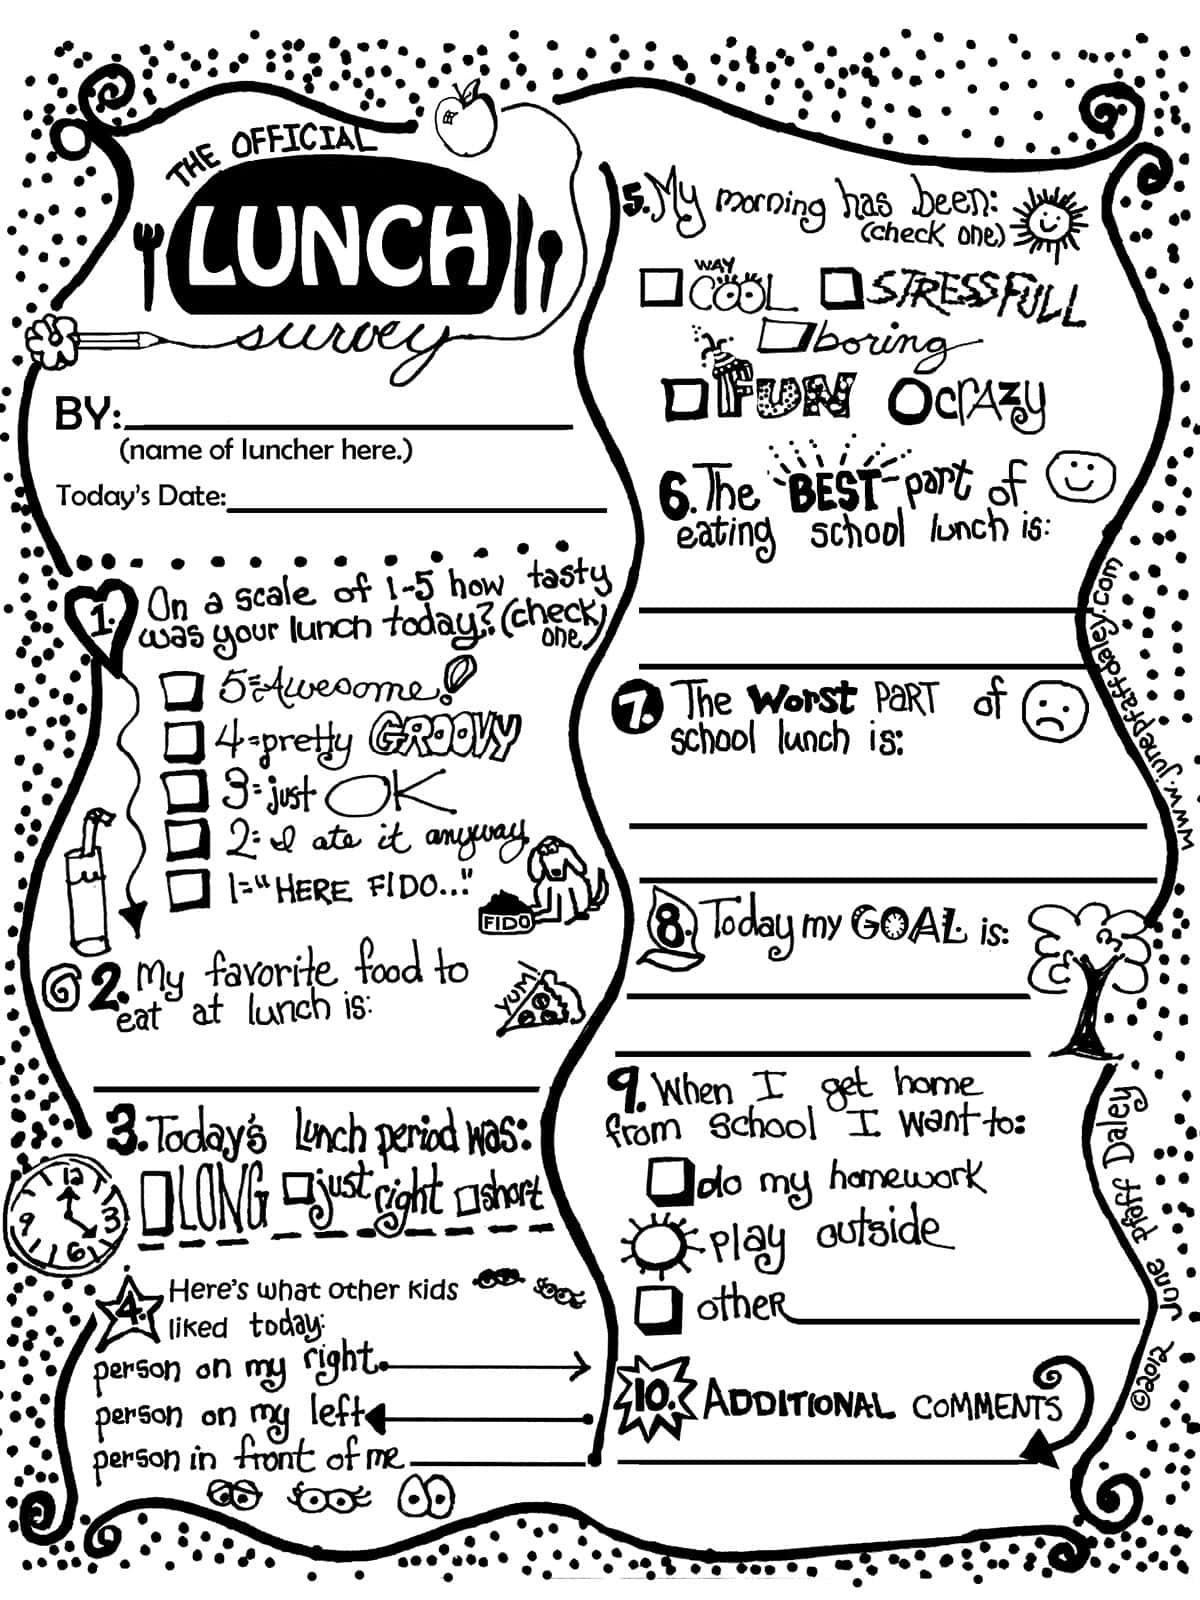 THE OFFICIAL
LUNCH
survey
BY:
(name of luncher here.)
Today's Date:
1. On a scale of 1-5 how tasty
was your lunch today? (check
one)
5=Awesome!
4=pretty GROOVY
3=just OK
2=I ate it anyway
1="HERE FIDO..."
FIDO
2. My favorite food to
eat at lunch is:
YUM!
3. Today's lunch period was:
LONG just right short
12
9 3
6
4. Here's what other kids
liked today:
person on my right
person on my left
person in front of me
5. My morning has been:
(check one)
WAY
COOL STRESSFULL
boring
FUN CRAZY
6. The BEST part of
eating school lunch is:
7. The Worst PART of
school lunch is:
8. Today my GOAL is:
9. When I get home
from school I want to:
do my homework
play outside
other
10. ADDITIONAL COMMENTS
www.junepfaffdaley.com
©2012 June Pfaff Daley